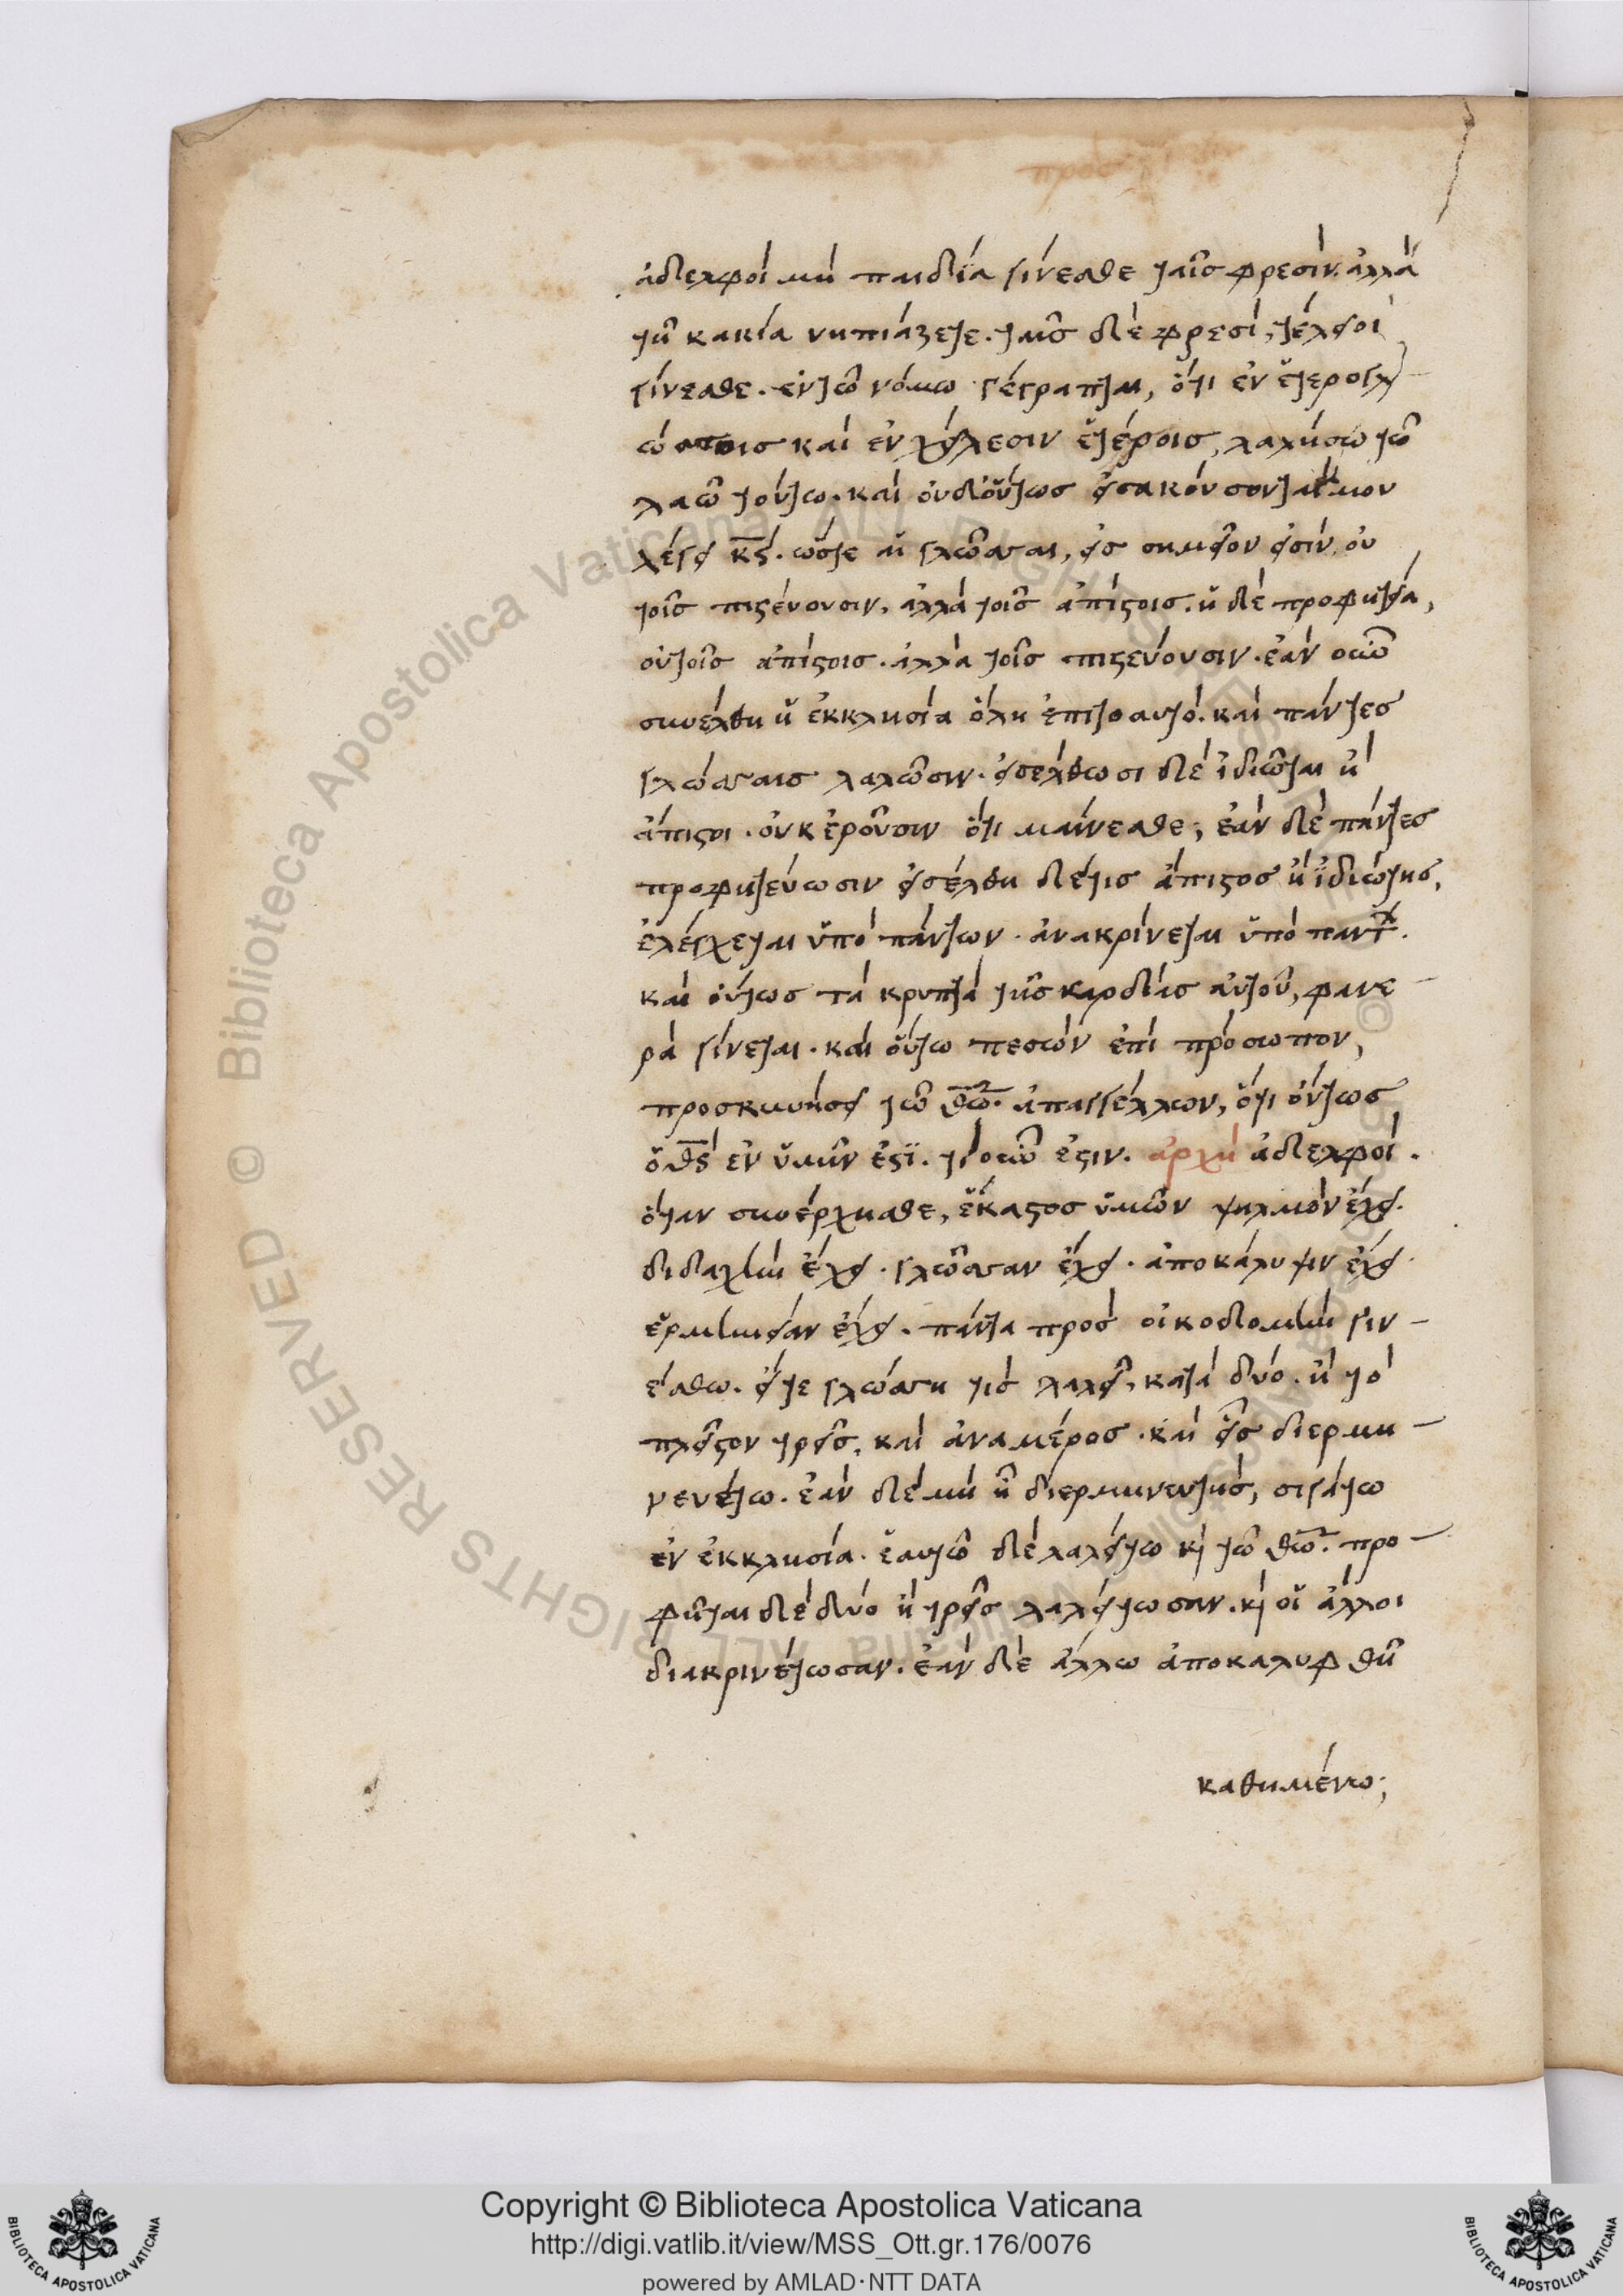 προσ
ἀδελφοὶ μὴ παιδία γίνεσθε ταῖς φρεσὶν. ἀλλὰ
τῆ κακία νηπιάζετε. ταῖς δὲ φρεσὶ, τέλειοι
γίνεσθε. ἐν τῶ νόμω γέγραπται, ὅτι ἐν ἑτερογλ
ώσσοις καὶ ἐν χείλεσιν ἑτέροις, λαλήσω τῶ
λαῶ τούτω. καὶ οὐδ' οὕτως εἰσακούσονταί μου
λέγει κς. ὥστε αἱ γλῶσσαι, εἰς σημεῖον εἰσὶν, οὐ
τοῖς πιστεύουσιν, ἀλλὰ τοῖς ἀπίστοις. ἡ δὲ προφητεία,
οὐ τοῖς ἀπίστοις. ἀλλὰ τοῖς πιστεύουσιν. ἐὰν οὖν
συνέλθη ἡ ἐκκλησία ὅλη ἐπιτοαυτό. καὶ πάντες
γλώσσαις λαλῶσιν. εἰσέλθωσι δὲ ἰδιῶται ἢ
ἄπιστοι. οὐκ ἐροῦσιν ὅτι μαίνεσθε; ἐὰν δὲ πάντες
προφητεύωσιν εἰσέλθη δέ τις ἄπιστος ἢ ἰδιώτης,
ἐλέγχεται ὑπὸ πάντων. ἀνακρίνεται ὑπὸ παντ.
καὶ οὕτως τὰ κρυπτὰ τῆς καρδίας αὐτοῦ, φανε
ρὰ γίνεται. καὶ οὕτω πεσὼν ἐπὶ πρόσωπον,
προσκυνήσει τῶ θῶ. ἀπαγγέλλων, ὅτι ὄντως
ὁ θς ἐν ὑμῖν ἐστϊ. τί οὖν ἐστιν. ἀρχὴ ἀδελφοί.
ὅταν συνέρχησθε, ἕκαστος ὑμῶν ψαλμὸν ἔχει.
διδαχὴν ἔχει. γλῶσσαν ἔχει. ἀποκάλυψιν ἔχει.
ἑρμηνείαν ἔχει. πάντα πρὸς οἰκοδομὴν γιν-
έσθω. εἴτε γλώσση τὶς λαλεῖ, κατὰ δύο. ἢ τὸ
πλεῖστον τρεῖς, καὶ ἀναμέρος. καὶ εἷς διερμη-
νευέτω. ἐὰν δὲ μὴ ἦ διερμηνευτὴς, σιγάτω
ἐν ἐκκλησία. ἑαυτῶ δὲ λαλείτω κὶ τῶ θῶ. προ-
φῆται δὲ δύο ἢ τρεῖς λαλείτωσαν. κὶ οἱ ἄλλοι
διακρινέτωσαν. ἐὰν δὲ ἄλλω ἀποκαλυφθῆ
καθημένω;
Copyright © Biblioteca Apostolica Vaticana
http://digi.vatlib.it/view/MSS_Ott.gr.176/0076
powered by AMLAD·NTT DATA